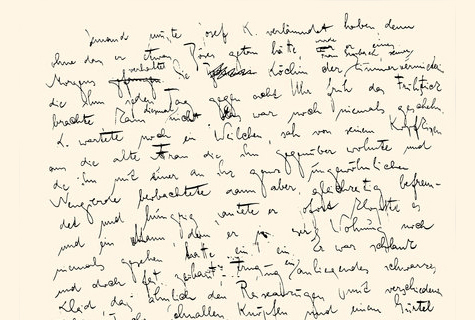 Jemand musste Josef K. verläumdet haben denn
ohne dass er etwas Böses getan hätte
Morgens verhaftet Die Köchin der Zimmervermieterin
die ihm jeden Tag gegen acht Uhr früh das Frühstück
brachte kam diesmal nicht. Das war noch niemals geschehn.
K. wartete noch ein Weilchen, sah von seinem Kopfkissen
aus die alte Frau die ihm gegenüber wohnte und
die ihn mit einer an ihr ganz ungewöhnlichen
Neugierde beobachtete dann aber, gleichzeitig befrem-
det und hungrig, läutete er. Sofort klopfte es
und ein Mann, den er in Wohnung noch
niemals gesehen hatte ein. Er war schlank
und doch fest gebaut, er trug ein anliegendes schwarzes
Kleid, das ähnlich den Reiseanzügen mit verschiedenen
Schnallen, Knöpfen und einem Gürtel